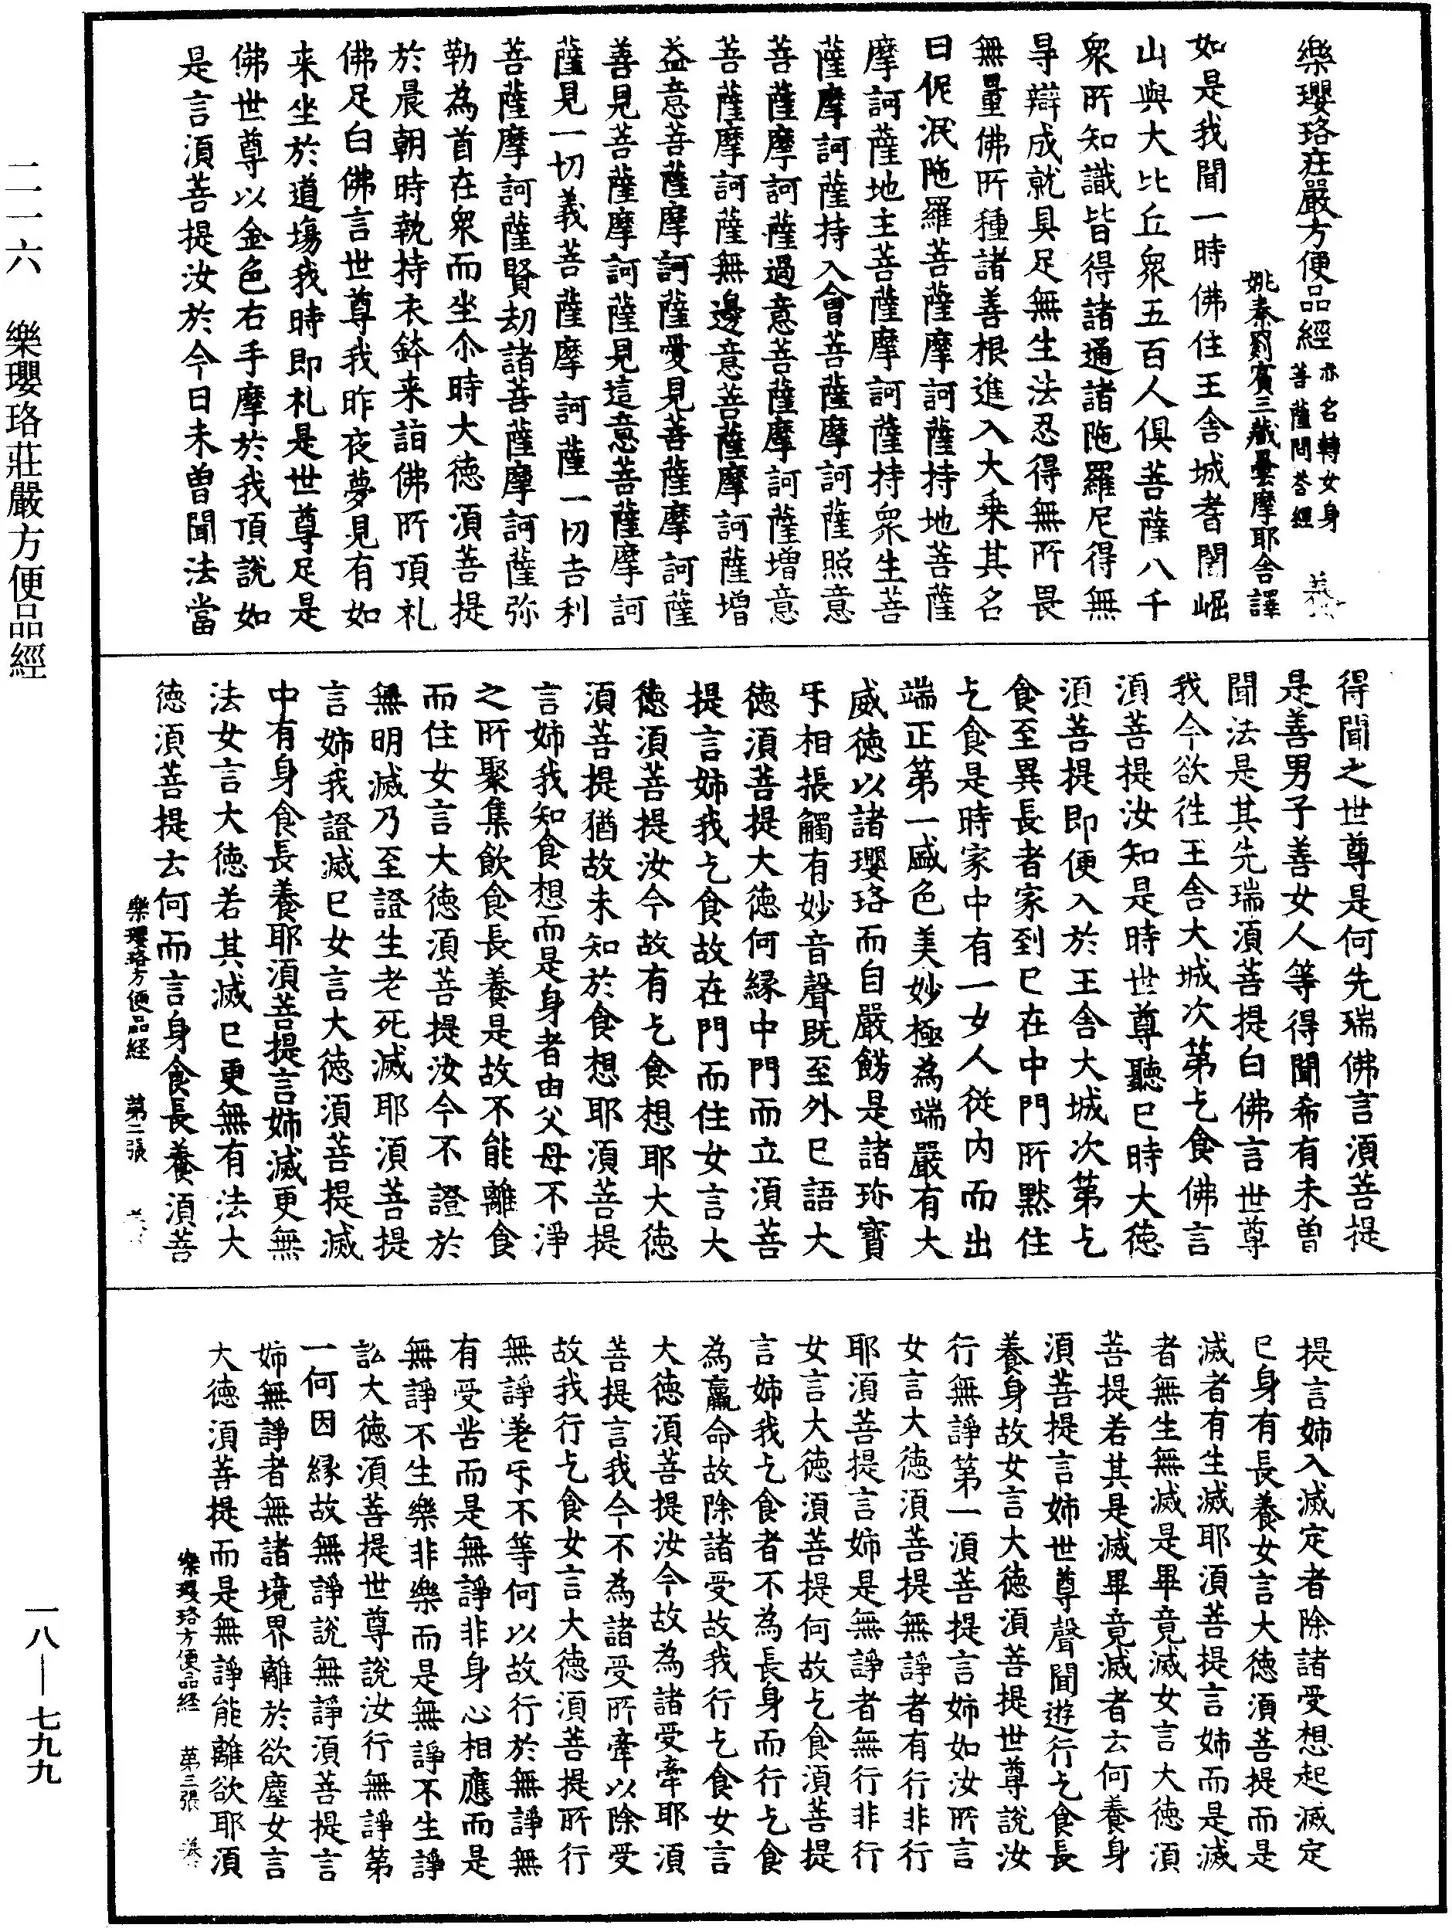 樂瓔珞莊嚴方便品經 亦名轉女身菩薩問答經
姚秦罽賓三藏曇摩耶舍譯
如是我聞一時佛住王舍城耆闍崛
山與大比丘衆五百人俱菩薩八千
衆所知識皆得諸通諸陁羅尼得無
㝵辯成就具足無生法忍得無所畏
無量佛所種諸善根進入大乘其名
曰伲泯陁羅菩薩摩訶薩持地菩薩
摩訶薩地主菩薩摩訶薩持衆生菩
薩摩訶薩持入會菩薩摩訶薩照意
菩薩摩訶薩過意菩薩摩訶薩增意
菩薩摩訶薩無邊意菩薩摩訶薩增
益意菩薩摩訶薩愛見菩薩摩訶薩
善見菩薩摩訶薩見這意菩薩摩訶
薩見一切義菩薩摩訶薩一切吉利
菩薩摩訶薩賢劫諸菩薩摩訶薩弥
勒為首在衆而坐尒時大德湏菩提
於晨朝時執持衣鉢来詣佛所頂礼
佛足白佛言世尊我昨夜夢見有如
来坐於道場我時即礼是世尊足是
佛世尊以金色右手摩於我頂說如
是言湏菩提汝於今日未曽聞法當
得聞之世尊是何先瑞佛言湏菩提
是善男子善女人等得聞希有未曽
聞法是其先瑞湏菩提白佛言世尊
我今欲往王舍大城次第乞食佛言
湏菩提汝知是時世尊聽已時大德
湏菩提即便入於王舍大城次第乞
食至異長者家到已在中門所默住
乞食是時家中有一女人從内而出
端正第一盛色美妙極為端嚴有大
威德以諸瓔珞而自嚴餝是諸珎寶
㸦相振觸有妙音聲既至外已語大
德湏菩提大德何緣中門而立湏菩
提言姉我乞食故在門而住女言大
德湏菩提汝今故有乞食想耶大德
湏菩提猶故未知於食想耶湏菩提
言姉我知食想而是身者由父母不淨
之所聚集飲食長養是故不能離食
而住女言大德湏菩提汝今不證於
無明滅乃至證生老死滅耶湏菩提
言姉我證滅已女言大德湏菩提滅
中有身食長養耶湏菩提言姉滅更無
法女言大德若其滅已更無有法大
德湏菩提云何而言身食長養湏菩
樂瓔珞方便品経 第二張
提言姉入滅定者除諸受想起滅定
已身有長養女言大德湏菩提而是
滅者有生滅耶湏菩提言姉而是滅
者無生無滅是畢竟滅女言大德湏
菩提若其是滅畢竟滅者云何養身
湏菩提言姉世尊聲聞遊行乞食長
養身故女言大德湏菩提世尊說汝
行無諍第一湏菩提言姉如汝所言
女言大德湏菩提無諍者有行非行
耶湏菩提言姉是無諍者無行非行
女言大德湏菩提何故乞食湏菩提
言姉我乞食者不為長身而行乞食
為羸命故除諸受故我行乞食女言
大德湏菩提汝今故為諸受牽耶湏
菩提言我今不為諸受所牽以除受
故我行乞食女言大德湏菩提所行
無諍老㸦不等何以故行於無諍無
有受苦而是無諍非身心相應而是
無諍不生樂非樂而是無諍不生諍
訟大德湏菩提世尊說汝行無諍第
一何因緣故無諍說無諍湏菩提言
姉無諍者無諸境界離於欲塵女言
大德湏菩提而是無諍能離欲耶湏
樂瓔珞方便品経 第三張
二一六 樂瓔珞莊嚴方便品經
一八—七九九